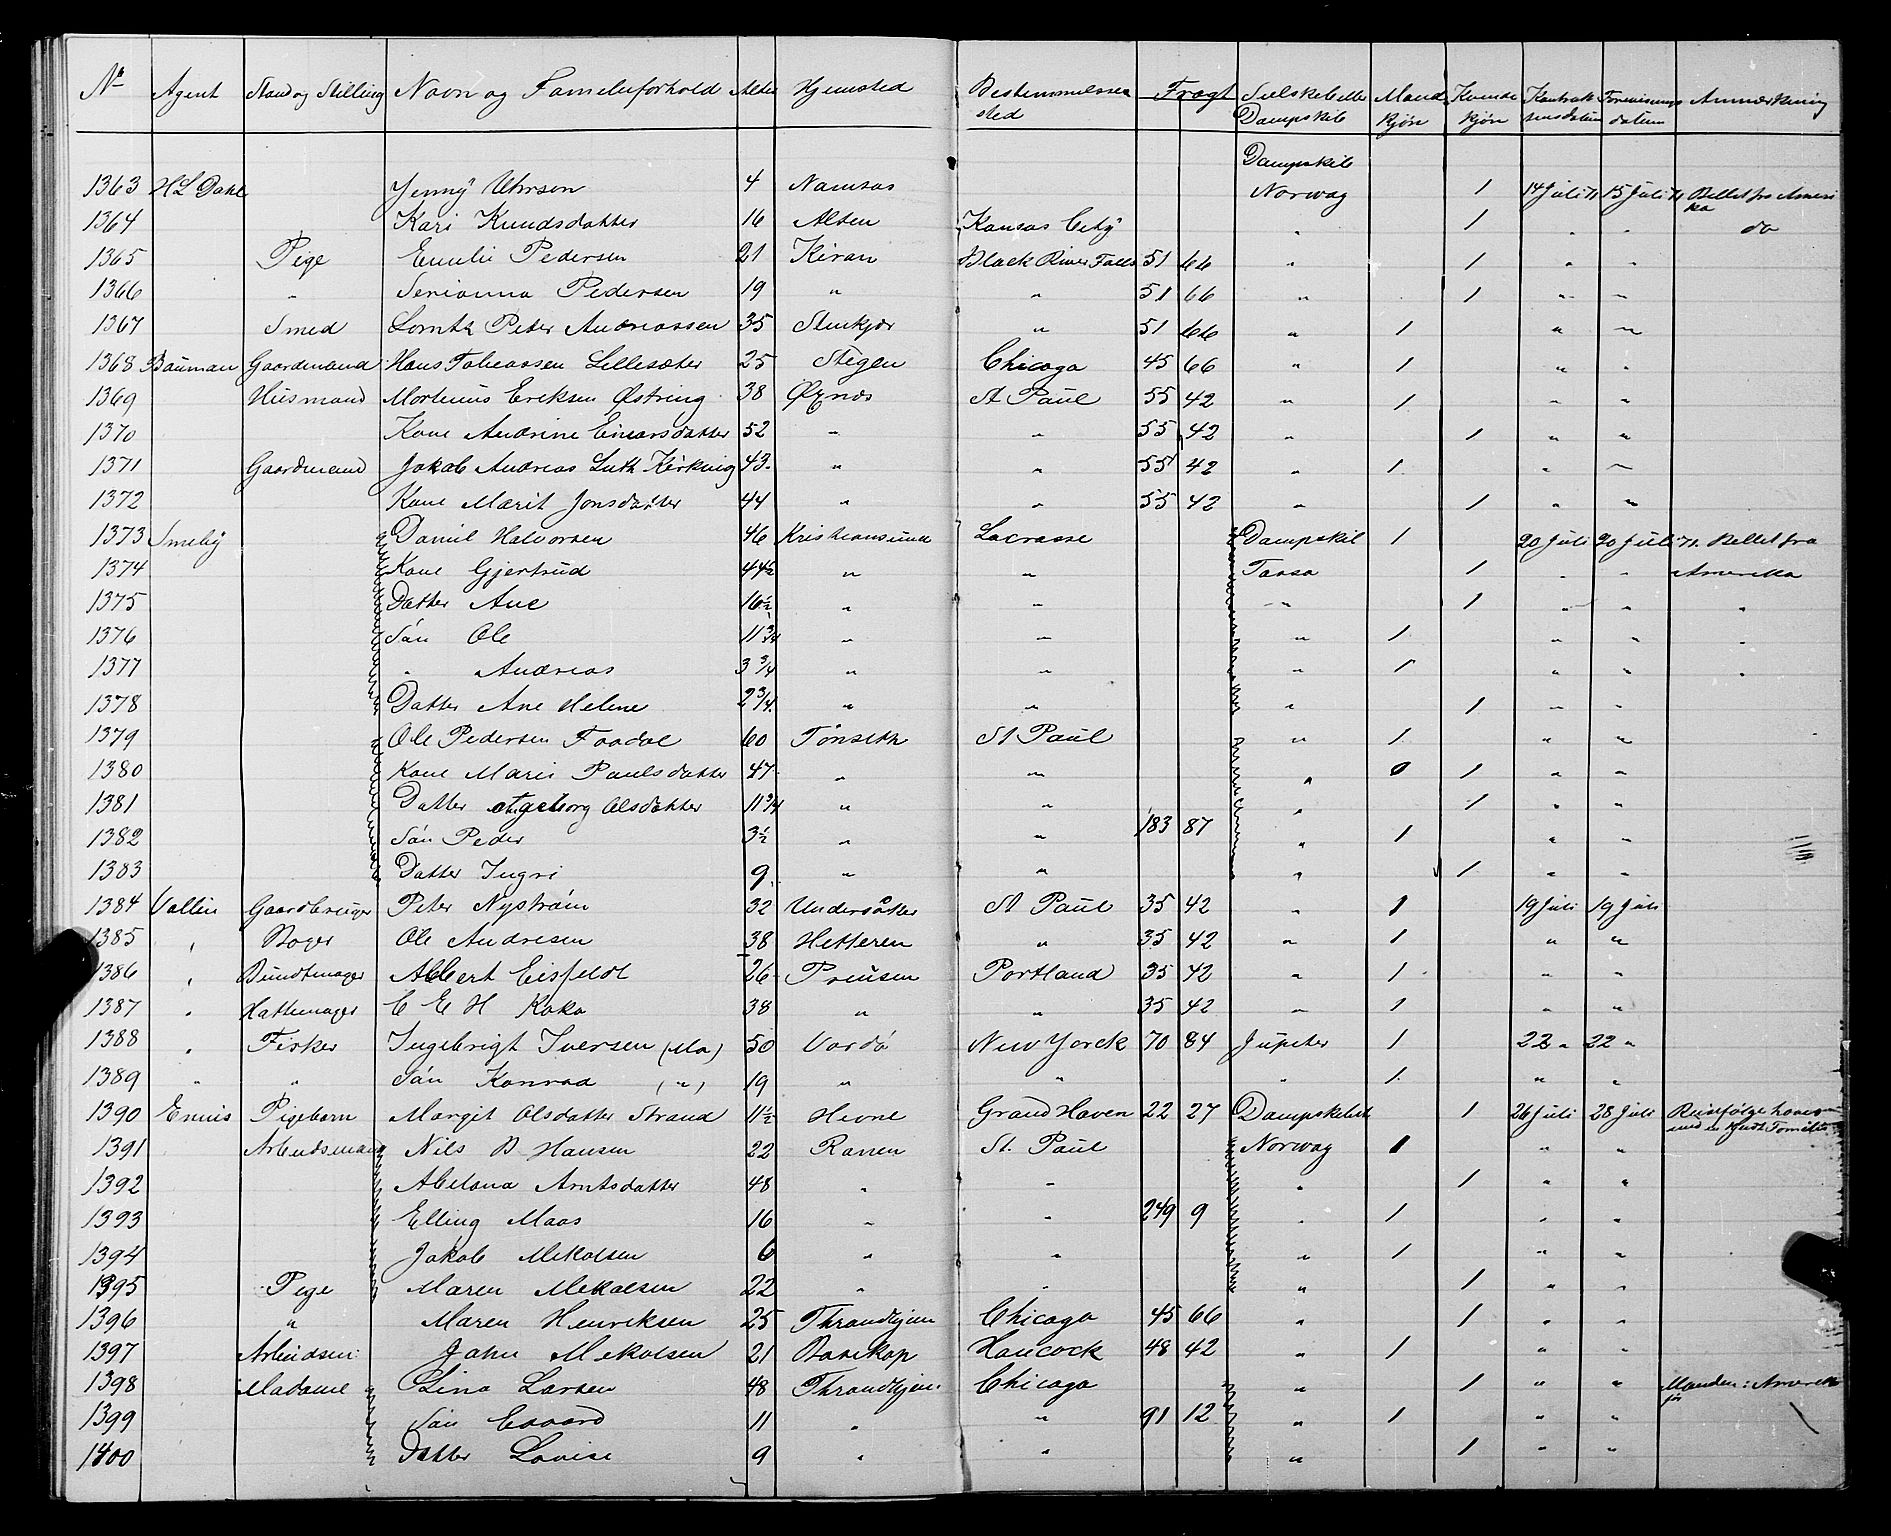 No Agent Stand og Stilling Navn og Familieforhold Alder Hjemsted Bestemmelsessted Fragt Seilskib eller Dampskib Mandkjøn Kvindekjøn Kontraktensdatum Forevisningsdatum Anmærkning
Dampskib
1363 H L Dahl Jenny 4 Namsos Norway 1 14 Juli 71 15 Juli 71 Billet fra Amerika
1364 Kari Knudsdatter 16 Alten Kansas City " 1 " " do
1365 Pige Emilie Pedersen 21 Black River Falls 51 66 " 1 " "
1366 " Pedersen 19 " " 51 66 " 1 " "
1367 Smed Peter Andreassen 35 Stenkjær " 51 66 " 1 " "
1368 Bauman Gaardmand Hans Lillesæter 25 Stegen Chicago 45 66 " 1 " "
1369 Husmand Mortinus Eriksen Østring 38 Øxnes St Paul 55 42 " 1 " "
1370 Kone Andrine Einarsdatter 52 " " 55 42 " 1 " "
1371 Gaardmand Jakob Andreas 43 " " 55 42 " 1 " "
1372 Kone Marit Jonsdatter 44 " " 55 42 " 1 " "
1373 Smeby Daniel Halvorsen 46 Kristiansund Lacrosse Dampskib 1 20 Juli 20 Juli 71. Billet fra
1374 Kone Gjertrud 44½ " " Tasso 1 " " Amerika
1375 Datter Ane 16½ " " " 1 " " "
1376 Søn Ole 11¾ " " " 1 " " "
1377 " Andreas 3¾ " " " 1 " " "
1378 Datter Ane Helene 2¾ " " " 1 " "
1379 Ole Pedersen 60 Tønseth St Paul " 1 " "
1380 Kone Marie Paulsdatter 47 " " " 0 1 " "
1381 Datter Olsdatter 11¾ " " " 1 " "
1382 Søn Peder 3½ " " 183 87 " 1 " "
1383 Datter Ingri 9 " " " 1 " "
1384 Vollin Gaardbruger Peter Nyström 32 Undersåker St Paul 35 42 " 1 19 Juli 19 Juli
1385 " Bager Ole Andresen 38 Hitteren " 35 42 " 1 " "
1386 " Bundtmager Albert Eisfeldt 26 Preusen Portland 35 42 " 1 " "
1387 " Hattemager C E H Koko 38 " " 35 42 " 1 " "
1388 " Fisker Ingebrigt Iversen (Mo) 50 Vardö New Yorck 70 84 Jupiter 1 22 " 22 "
1389 " " Søn Konrad (") 19 " " " 1 " "
1390 Ennis Pigebarn Margit Olsdatter Strand 11½ Hevne Grand Haven 22 27 Dampskibet 1 26 Juli 28 Juli Reisefølge haves med en kjendt Familie
1391 Arbeidsmand Nils B Hansen 22 Ranen St. Paul Norway 1 " "
1392 Abelona Arntsdatter 48 " " " 1 " "
1393 Elling Maas 16 " " 249 9 " 1 " "
1394 Jakob Mikalsen 6 " " " 1 " "
1395 Pige Maren Mikalsen 22 " " " 1 " "
1396 " Maren Henriksen 25 Throndhjem Chicago 45 66 " 1 " "
1397 Arbeidsm: John Mikalsen 21 Bosekop Hancock 48 42 " 1 " "
1398 Madame Lina Larsen 48 Throndhjem Chicago " 1 " " Manden i Amerika før
1399 Søn Edvard 11 " " 91 12 " 1 " "
1400 Datter Lovise 9 " " " 1 " "